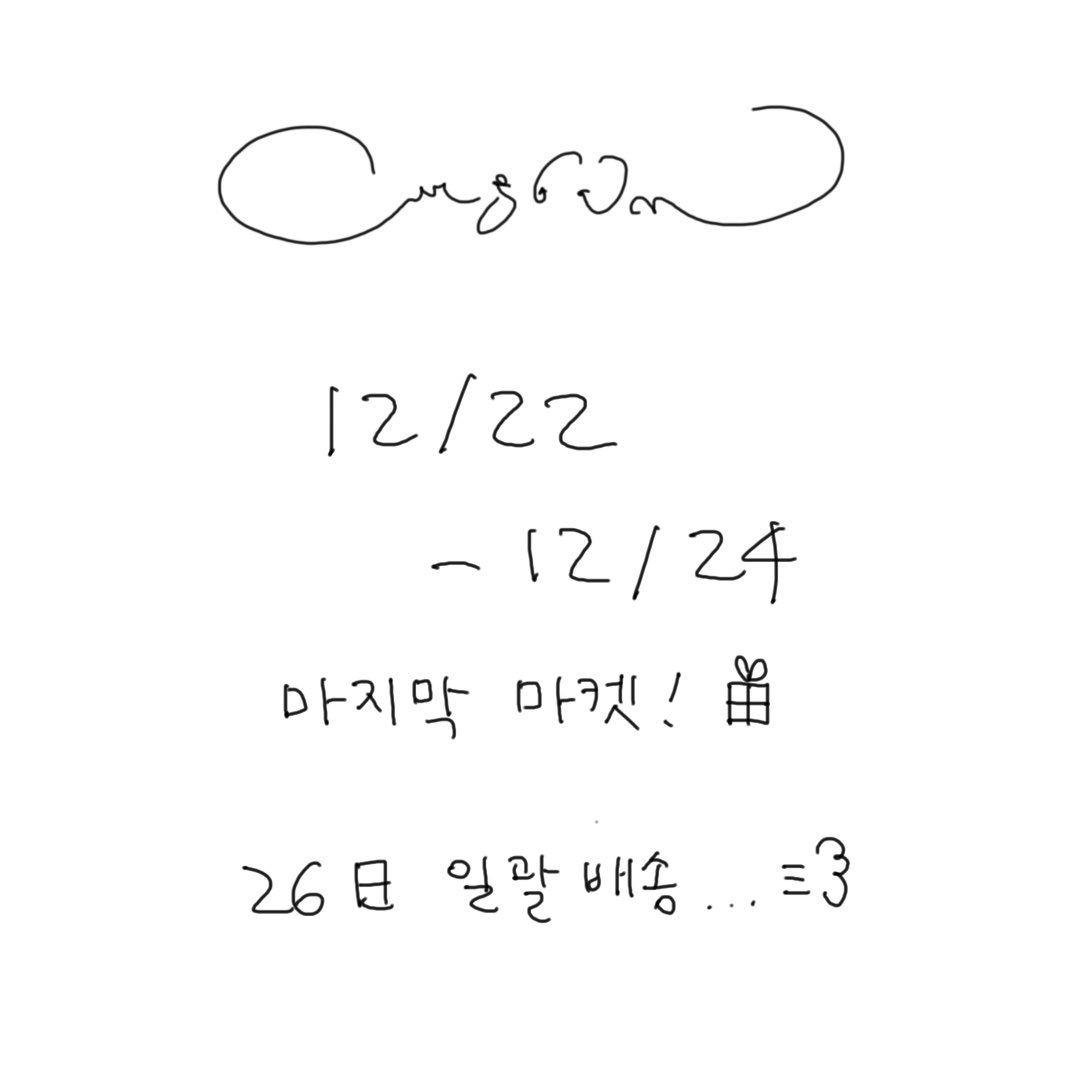 12/22
- 12/24
마지막 마켓!
26日 일괄 배송...